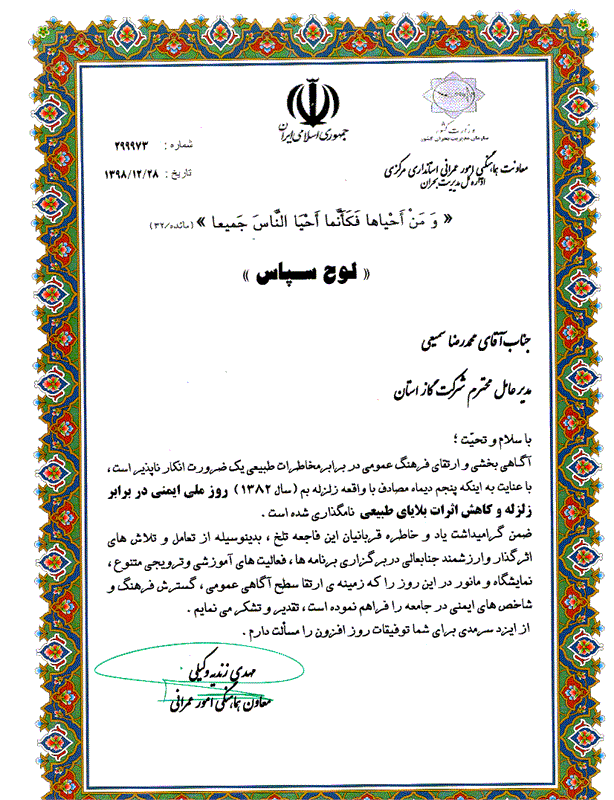 جمهوری اسلامی ایران
وزارت کشور
سازمان مدیریت بحران کشور
شماره : ۲۹۹۹۷۳
تاریخ : ۱۳۹۸/۱۲/۲۸
معاونت هماهنگی امور عمرانی استانداری مرکزی
اداره کل مدیریت بحران
« وَ مَنْ أَحْیاها فَکَأَنَّما أَحْیَا النَّاسَ جَمیعا » (مائده/۳۲)
« لوح سپاس »
جناب آقای محمدرضا سمیعی
مدیرعامل محترم شرکت گاز استان
با سلام و تحیّت ؛
آگاهی بخشی و ارتقای فرهنگ عمومی در برابر مخاطرات طبیعی یک ضرورت انکار ناپذیر است ،
با عنایت به اینکه پنجم دیماه مصادف با واقعه زلزله بم (سال ۱۳۸۲) روز ملی ایمنی در برابر
زلزله و کاهش اثرات بلایای طبیعی نامگذاری شده است .
ضمن گرامیداشت یاد و خاطره قربانیان این فاجعه تلخ ، بدینوسیله از تعامل و تلاش های
اثرگذار وارزشمند جنابعالی دربرگزاری برنامه ها ، فعالیت های آموزشی وترویجی متنوع ،
نمایشگاه و مانور در این روز را که زمینه ی ارتقا سطح آگاهی عمومی ، گسترش فرهنگ و
شاخص های ایمنی در جامعه را فراهم نموده است ، تقدیر و تشکر می نمایم .
از ایزد سرمدی برای شما توفیقات روز افزون را مسألت دارم .
مهدی زندیه وکیلی
معاون هماهنگی امور عمرانی